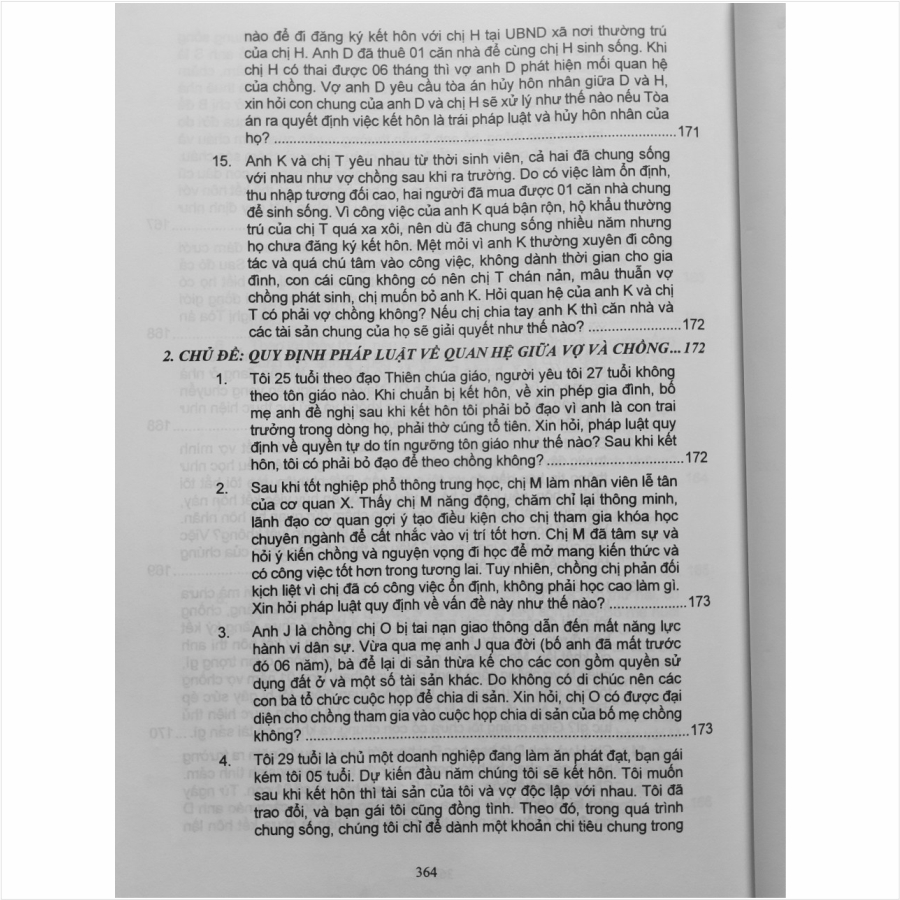 nào để đi đăng ký kết hôn với chị H tại UBND xã nơi thường trú
của chị H. Anh D đã thuê 01 căn nhà để cùng chị H sinh sống. Khi
chị H có thai được 06 tháng thì vợ anh D phát hiện mối quan hệ
của chồng. Vợ anh D yêu cầu tòa án hủy hôn nhân giữa D và H,
xin hỏi con chung của anh D và chị H sẽ xử lý như thế nào nếu Tòa
án ra quyết định việc kết hôn là trái pháp luật và hủy hôn nhân của
họ? ................................................................171
15. Anh K và chị T yêu nhau từ thời sinh viên, cả hai đã chung sống
với nhau như vợ chồng sau khi ra trường. Do có việc làm ổn định,
thu nhập tương đối cao, hai người đã mua được 01 căn nhà chung
để sinh sống. Vì công việc của anh K quá bận rộn, hộ khẩu thường
trú của chị T quá xa xôi, nên dù đã chung sống nhiều năm nhưng
họ chưa đăng ký kết hôn. Mệt mỏi vì anh K thường xuyên đi công
tác và quá chú tâm vào công việc, không dành thời gian cho gia
đình, con cái cũng không có nên chị T chán nản, mâu thuẫn vợ
chồng phát sinh, chị muốn bỏ anh K. Hỏi quan hệ của anh K và chị
T có phải vợ chồng không? Nếu chị chia tay anh K thì căn nhà và
các tài sản chung của họ sẽ giải quyết như thế nào? .......................172
2. CHỦ ĐỀ: QUY ĐỊNH PHÁP LUẬT VỀ QUAN HỆ GIỮA VỢ VÀ CHỒNG...172
1. Tôi 25 tuổi theo đạo Thiên chúa giáo, người yêu tôi 27 tuổi không
theo tôn giáo nào. Khi chuẩn bị kết hôn, về xin phép gia đình, bố
mẹ anh đề nghị sau khi kết hôn tôi phải bỏ đạo vì anh là con trai
trưởng trong dòng họ, phải thờ cúng tổ tiên. Xin hỏi, pháp luật quy
định về quyền tự do tín ngưỡng tôn giáo như thế nào? Sau khi kết
hôn, tôi có phải bỏ đạo để theo chồng không? ..................................172
2. Sau khi tốt nghiệp phổ thông trung học, chị M làm nhân viên lễ tân
của cơ quan X. Thấy chị M năng động, chăm chỉ lại thông minh,
lãnh đạo cơ quan gợi ý tạo điều kiện cho chị tham gia khóa học
chuyên ngành để cất nhắc vào vị trí tốt hơn. Chị M đã tâm sự và
hỏi ý kiến chồng và nguyện vọng đi học để mở mang kiến thức và
có công việc tốt hơn trong tương lai. Tuy nhiên, chồng chị phản đối
kịch liệt vì chị đã có công việc ổn định, không phải học cao làm gì.
Xin hỏi pháp luật quy định về vấn đề này như thế nào? ...................173
3. Anh J là chồng chị O bị tai nạn giao thông dẫn đến mất năng lực
hành vi dân sự. Vừa qua mẹ anh J qua đời (bố anh đã mất trước
đó 06 năm), bà để lại di sản thừa kế cho các con gồm quyền sử
dụng đất ở và một số tài sản khác. Do không có di chúc nên các
con bà tổ chức cuộc họp để chia di sản. Xin hỏi, chị O có được đại
diện cho chồng tham gia vào cuộc họp chia di sản của bố mẹ chồng
không? ................................................................173
4. Tôi 29 tuổi là chủ một doanh nghiệp đang làm ăn phát đạt, bạn gái
kém tôi 05 tuổi. Dự kiến đầu năm chúng tôi sẽ kết hôn. Tôi muốn
sau khi kết hôn thì tài sản của tôi và vợ độc lập với nhau. Tôi đã
trao đổi, và bạn gái tôi cũng đồng tình. Theo đó, trong quá trình
chung sống, chúng tôi chỉ để dành một khoản chi tiêu chung trong
364